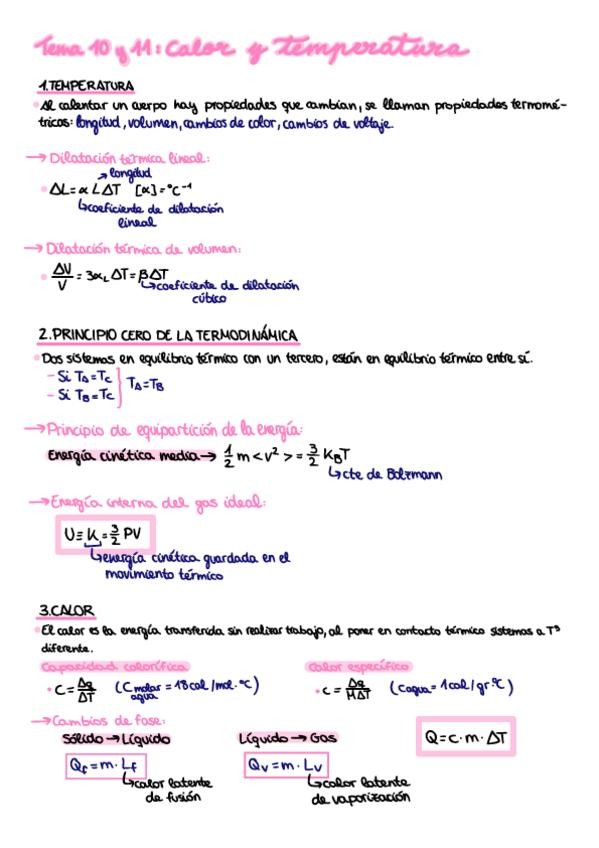 Tema 10 y 11: Calor y temperatura
1. TEMPERATURA
• Al calentar un cuerpo hay propiedades que cambian, se llaman propiedades termomé-
tricas: longitud, volumen, cambios de color, cambios de voltaje.
→ Dilatación térmica lineal:
↗ longitud
• ΔL = α L ΔT [α] = °C⁻¹
↳ coeficiente de dilatación
lineal
→ Dilatación térmica de volumen:
• ΔV/V = 3α_L ΔT = βΔT
↳ coeficiente de dilatación
cúbico
2. PRINCIPIO CERO DE LA TERMODINÁMICA
• Dos sistemas en equilibrio térmico con un tercero, están en equilibrio térmico entre sí.
- Si T_A = T_C
- Si T_B = T_C } T_A = T_B
→ Principio de equipartición de la energía:
Energía cinética media → 1/2 m <v²> = 3/2 K_B T
↳ cte de Bolzmann
→ Energía interna del gas ideal:
U ≡ K = 3/2 PV
↳ energía cinética guardada en el
movimiento térmico
3. CALOR
• El calor es la energía transferida sin realizar trabajo, al poner en contacto térmico sistemas a Tª
diferente.
Capacidad calorífica Calor específico
• C = Δq/ΔT (C molar agua = 18 cal/mol·°C) • c = Δq/MΔT (c agua = 1 cal/gr °C)
→ Cambios de fase:
Sólido → Líquido Líquido → Gas Q = c · m · ΔT
Q_f = m · L_f Q_v = m · L_v
↳ calor latente ↳ calor latente
de fusión de vaporización